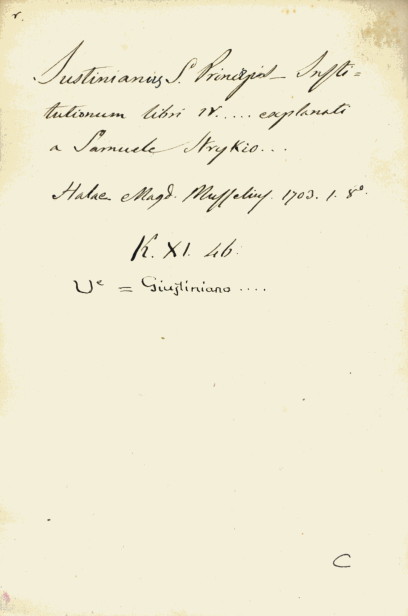 r.
Justinianus S. Principis Insti=
tutionum libri IV..... explanati
a Samuele Strykio...
Halae Magd. Musselius. 1703. 1. 8°.
K. XI. 46.
Ve = Giustiniano ....
C